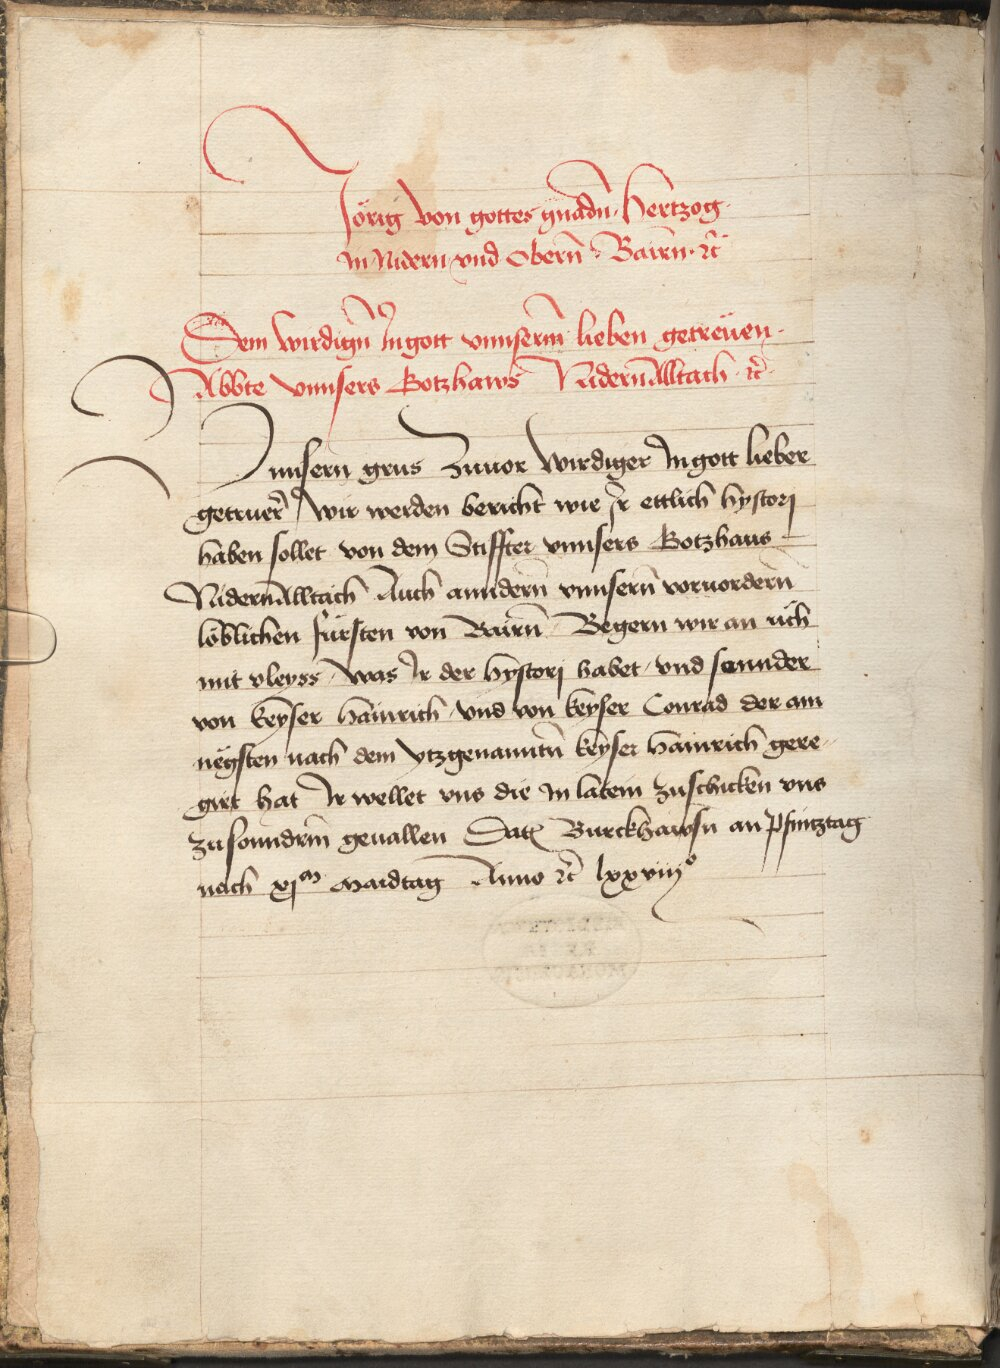 Jörig von gottes gnadn̄ · Hertzog ·
In Nidern vnd Obern̄ · Bairn̄ · ꝛc̄
Dem wirdign̄ In gott vnnserm̄ lieben getreüen ·
Abbte vnnsers Gotzhaws Nidern̄Alltach · ꝛc̄ ·
Vnnsern grus Zuuor Wirdiger In gott lieber
getruer̄ Wir werden bericht wie Ir ettlich hystorj
haben sollet von dem Stiffter vnnsers Gotzhaus
Nidern̄Alltach Auch anndern̄ vnnsern̄ voruordern̄
löblichen fürsten von Bairn̄ Begern wir an üch
mit vleyss · Was Ir der hystorj habet · vnd sonnder
von keyser Hainrich · vnd von keyser Conrad der am
negsten nach dem ytzgenanntn̄ keyser Hainrich gere¬
girt hat Ir wellet vns die In latein zuschicken vns
zu sonndrm̄ geuallen Dat Burckhawsn an Pfintztag
nach xjm Maidtag Anno ꝛc̄ lxxviiijo